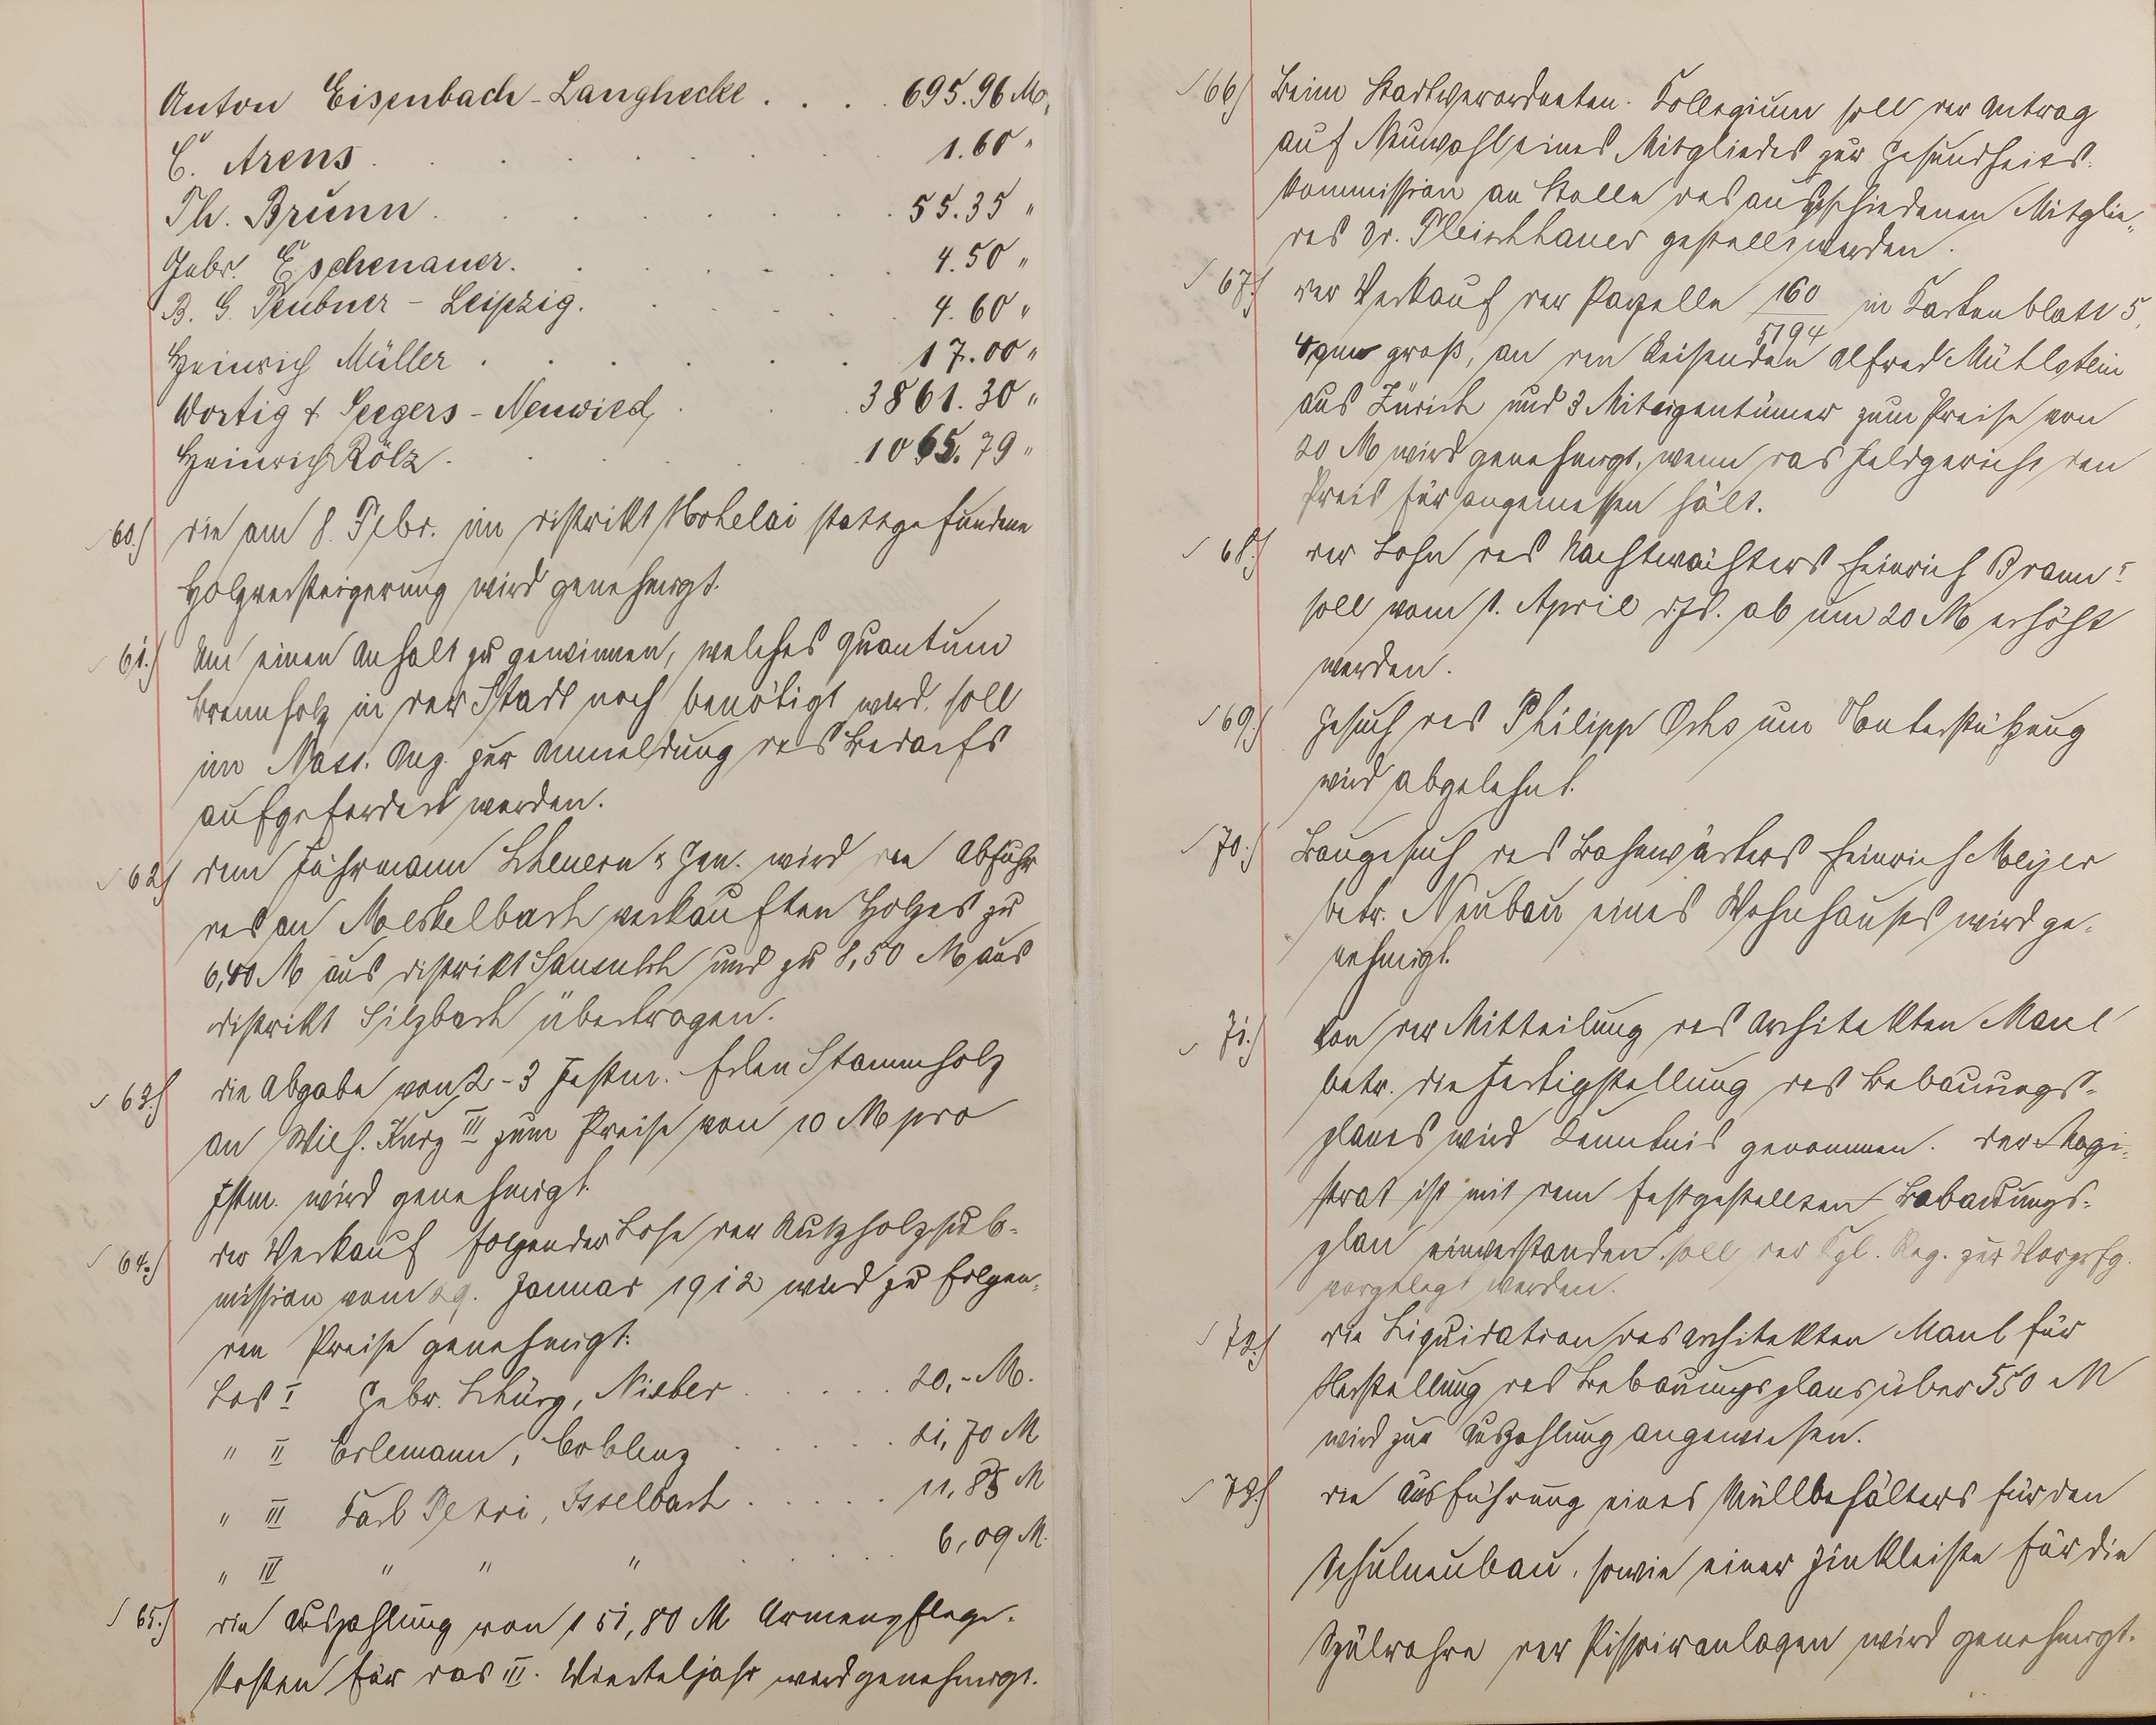 Anton Eisenbach-Langhecke . . . . 695.96 M.
C. Arens . . . . 1.60 "
Th. Brunn . . . . 55.35 "
Gebr. Eschenauer. . . . . 4.50 "
B. G. Teubner - Leipzig. . . . . 4.60 "
Heinrich Müller . . . . 17.00 "
Wortig & Seegers - Neuwied, . . . 3861.30 "
Heinrich Rölz . . . . 1065.79 "
60.) die am 8. Febr. im Distrikt Hohelai stattgefundene
Holzversteigerung wird genehmigt.
61.) Um einen Anhalt zu gewinnen, welches Quantum
Brennholz in der Stadt noch benötigt wird, soll
im Nass. Anz. zur Anmeldung des Bedarfs
aufgefordert werden.
62) dem Fuhrmann Scheuern & Gen. wird die Abfuhr
des an Meckelbach verkauften Holzes zu
6,40 M aus Distrikt und zu 8,50 M aus
Distrikt Silzbach übertragen.
63.) die Abgabe von 2-3 Festm. Erlen Stammholz
an Wilh. Kurz III zum Preise von 10 M pro
Fstm. wird genehmigt.
64.) der Verkauf folgender Lose der Nutzholzsub-
mission vom 29. Januar 1912 wird zu folgen-
den Preise genehmigt:
Los I Gebr. Schürg, Nieber . . . . . 20,- M.
" II Erlemann, Coblenz . . . . . 21,70 M
" III Karl Petri, Isselbach . . . . . 11,85 M
" IV " " " . . . . . 6,09 M.
65.) die Auszahlung von 151,80 M Armenpflege-
kosten für das III. Vierteljahr wird genehmigt.
66) Beim Stadtverordneten-Kollegium soll der Antrag
auf Neuwahl eines Mitgliedes zur Gesundheits-
kommission an Stelle des ausgeschiedenen Mitglie-
des Dr. Fleischhauer gestellt werden.
67.) der Verkauf der Parzelle 160/5194 in Kartenblatt 5,
4 qm groß, an den Reisenden Alfred Mühlstein
aus Zürich und 3 Miteigentümer zum Preise von
20 M wird genehmigt, wenn das Feldgericht den
Preis für angemessen hält.
68.) der Lohn des Nachtwächters Heinrich Braun I
soll vom 1. April d. Js. ab um 20 M erhöht
werden.
69.) Gesuch des Philipp Ochs um Unterstützung
wird abgelehnt.
70.) Baugesuch des Bahnwärters Heinrich Meyer
betr. Neubau eines Wohnhauses wird ge-
nehmigt.
71.) Von der Mitteilung des Architekten Maul
betr. die Fertigstellung des Bebauungs-
planes wird Kenntnis genommen. Der Magi-
strat ist mit dem festgestellten Bebauungs-
plan einverstanden. soll der Kgl. Reg. zur
vorgelegt werden.
72.) die Liquidation des Architekten Maul für
Herstellung des Bebauungsplans über 550 M
wird zur Auszahlung angewiesen.
73.) die Ausführung eines Müllbehälters für den
Schulneubau, sowie einer Zinkleiste für die
Spülrohre der Pissoiranlagen wird genehmigt.